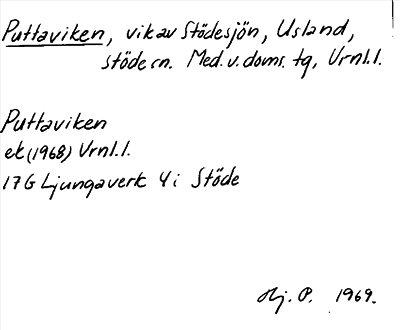 Puttaviken, vik av Stödesjön, Usland,
Stöde sn. Med. v. doms. tg, Vrnl. l.
Puttaviken
ek (1968) Vrnl. l.
17G Ljungaverk 4i Stöde
Hj. P. 1969.